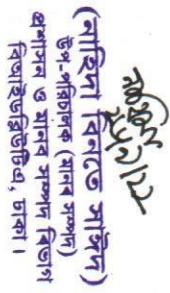 (নাহিদা বিনতে সাঈদ)
উপ-পরিচালক (মানব সম্পদ)
প্রশাসন ও মানব সম্পদ বিভাগ
বিআইডব্লিউটিএ, ঢাকা।